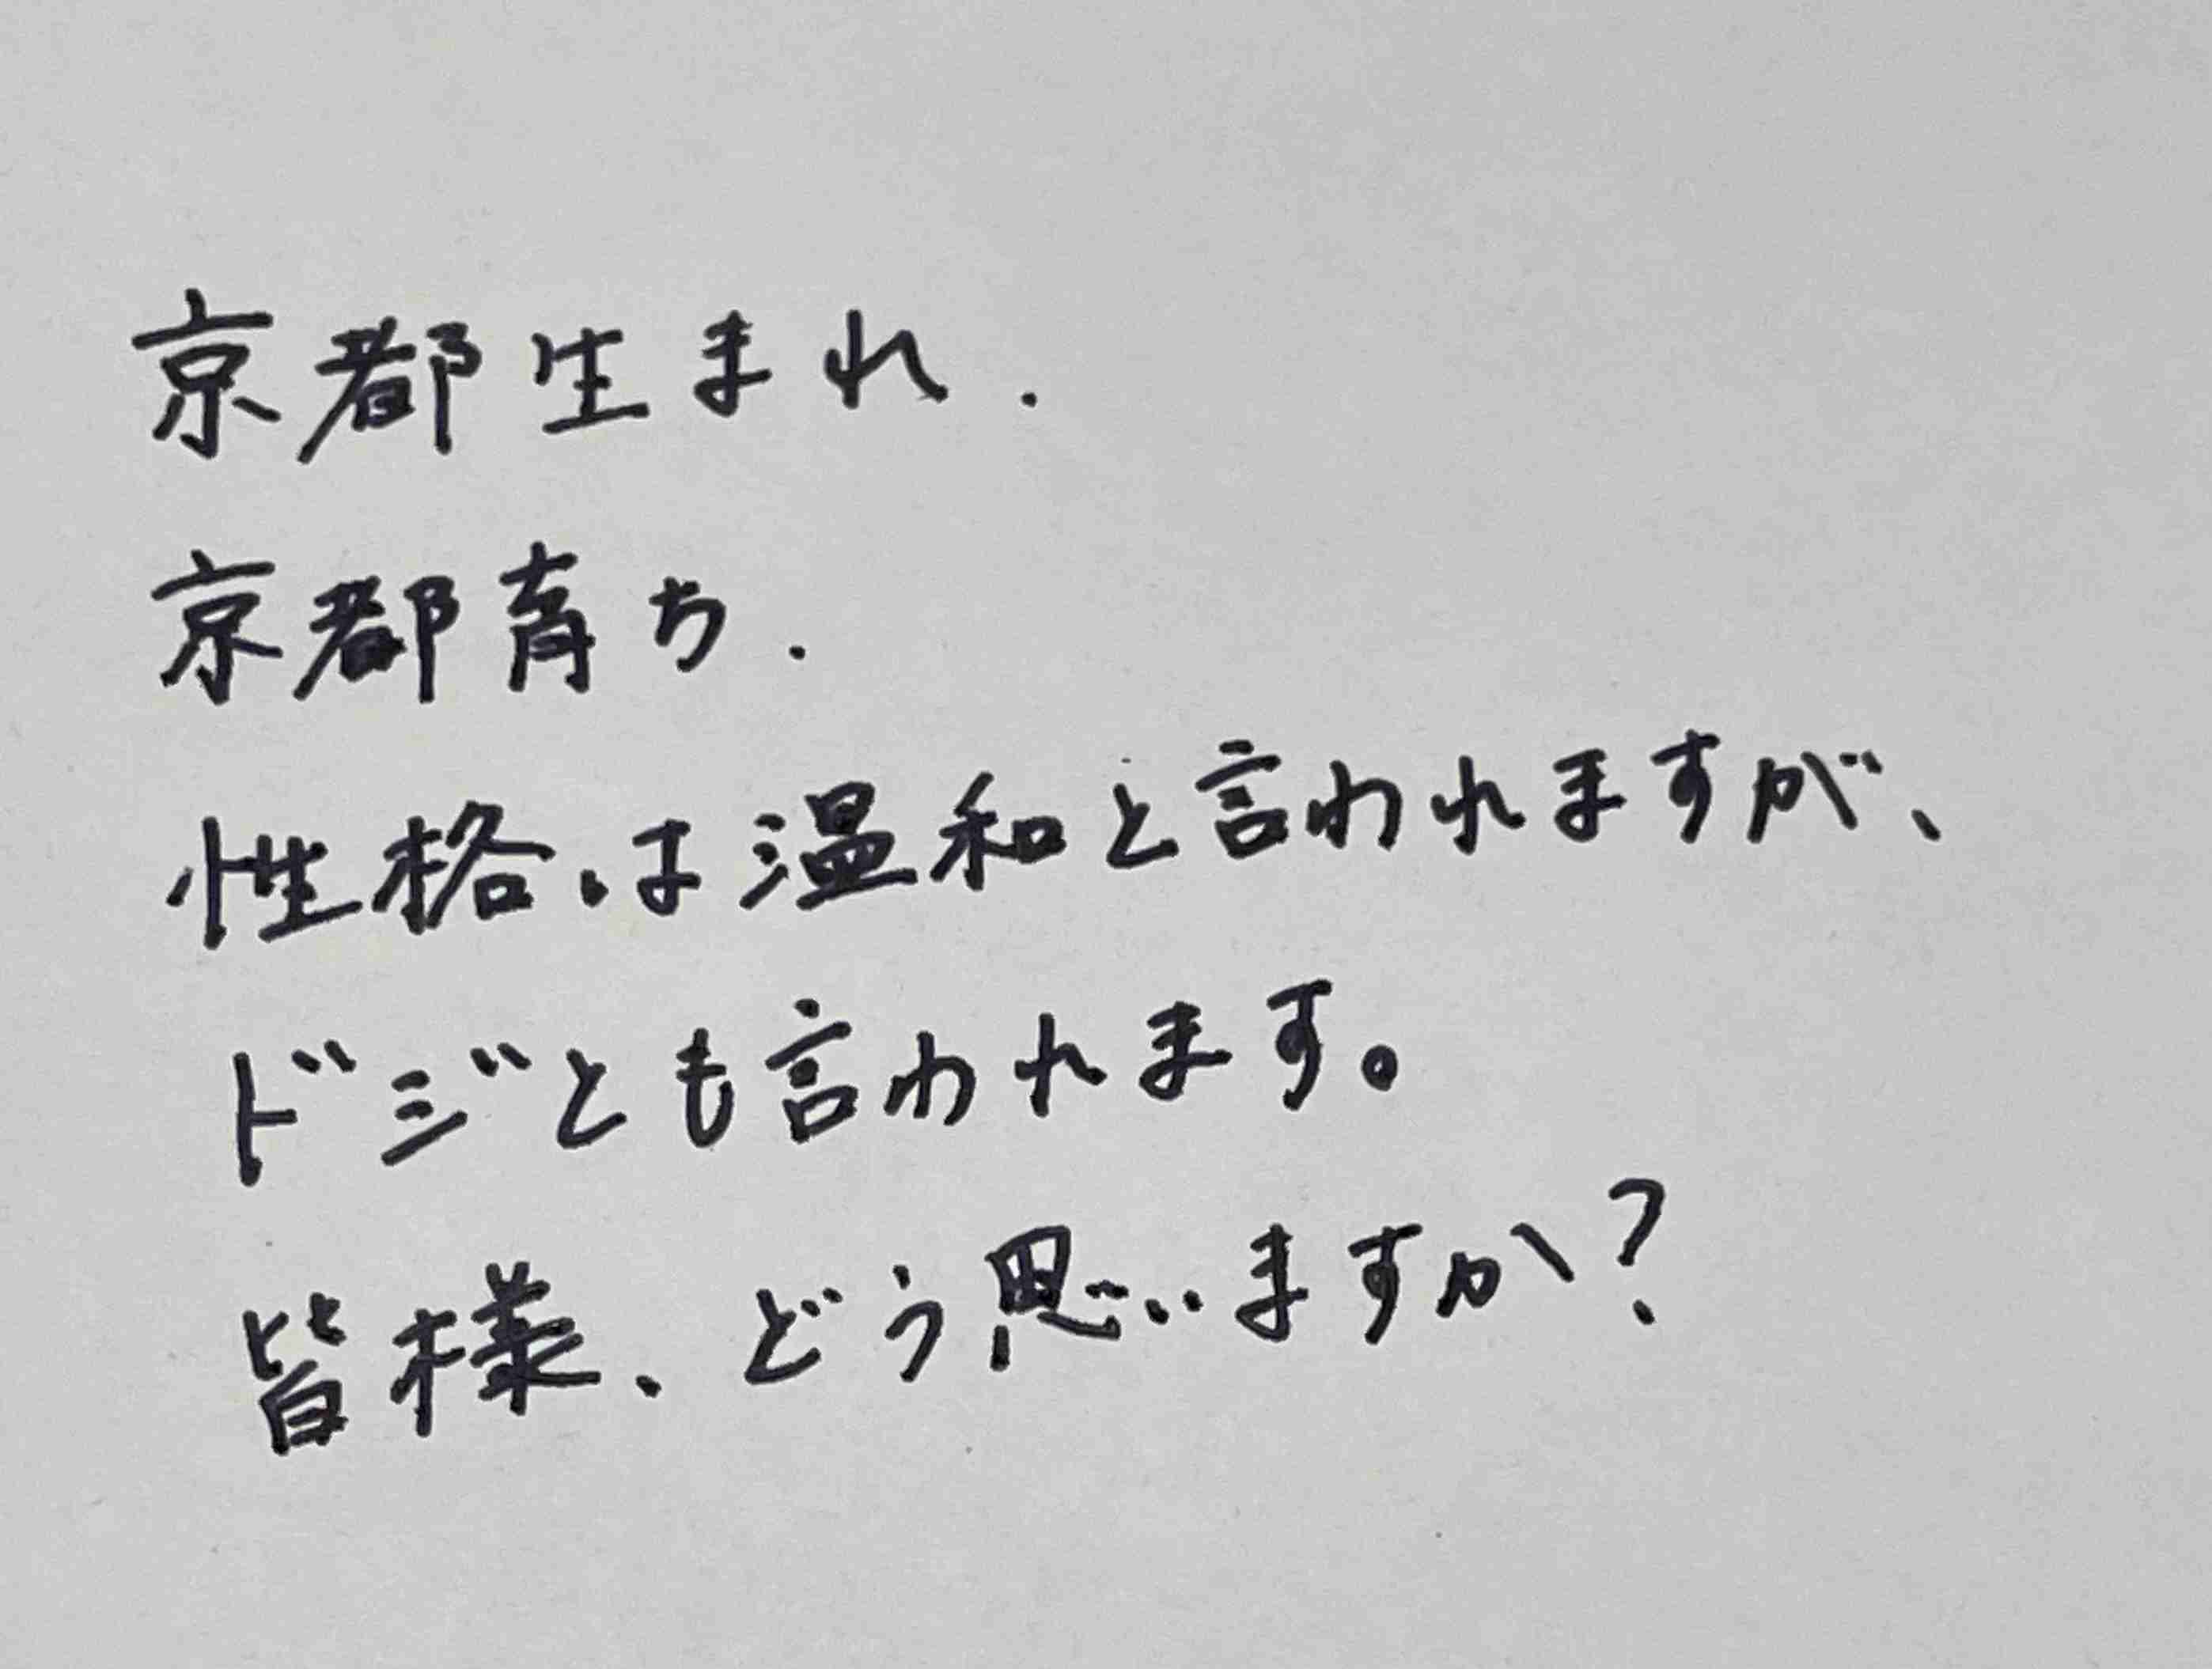 京都生まれ.
京都育ち.
性格は温和と言われますが、
ドジとも言われます。
皆様、どう思いますか?